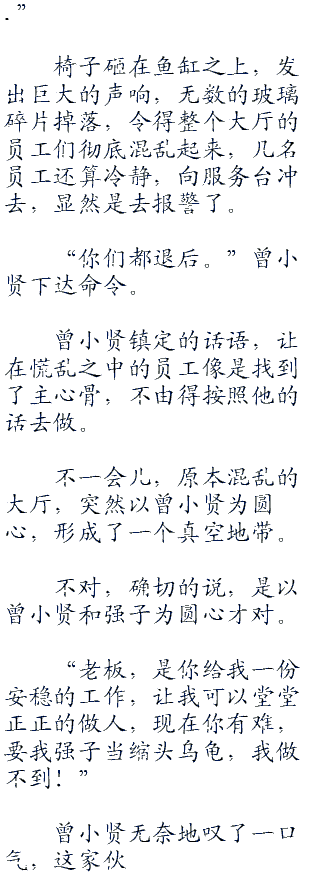 .”
椅子砸在鱼缸之上，发
出巨大的声响，无数的玻璃
碎片掉落，令得整个大厅的
员工们彻底混乱起来，几名
员工还算冷静，向服务台冲
去，显然是去报警了。
“你们都退后。”曾小
贤下达命令。
曾小贤镇定的话语，让
在慌乱之中的员工像是找到
了主心骨，不由得按照他的
话去做。
不一会儿，原本混乱的
大厅，突然以曾小贤为圆
心，形成了一个真空地带。
不对，确切的说，是以
曾小贤和强子为圆心才对。
“老板，是你给我一份
安稳的工作，让我可以堂堂
正正的做人，现在你有难，
要我强子当缩头乌龟，我做
不到！”
曾小贤无奈地叹了一口
气，这家伙